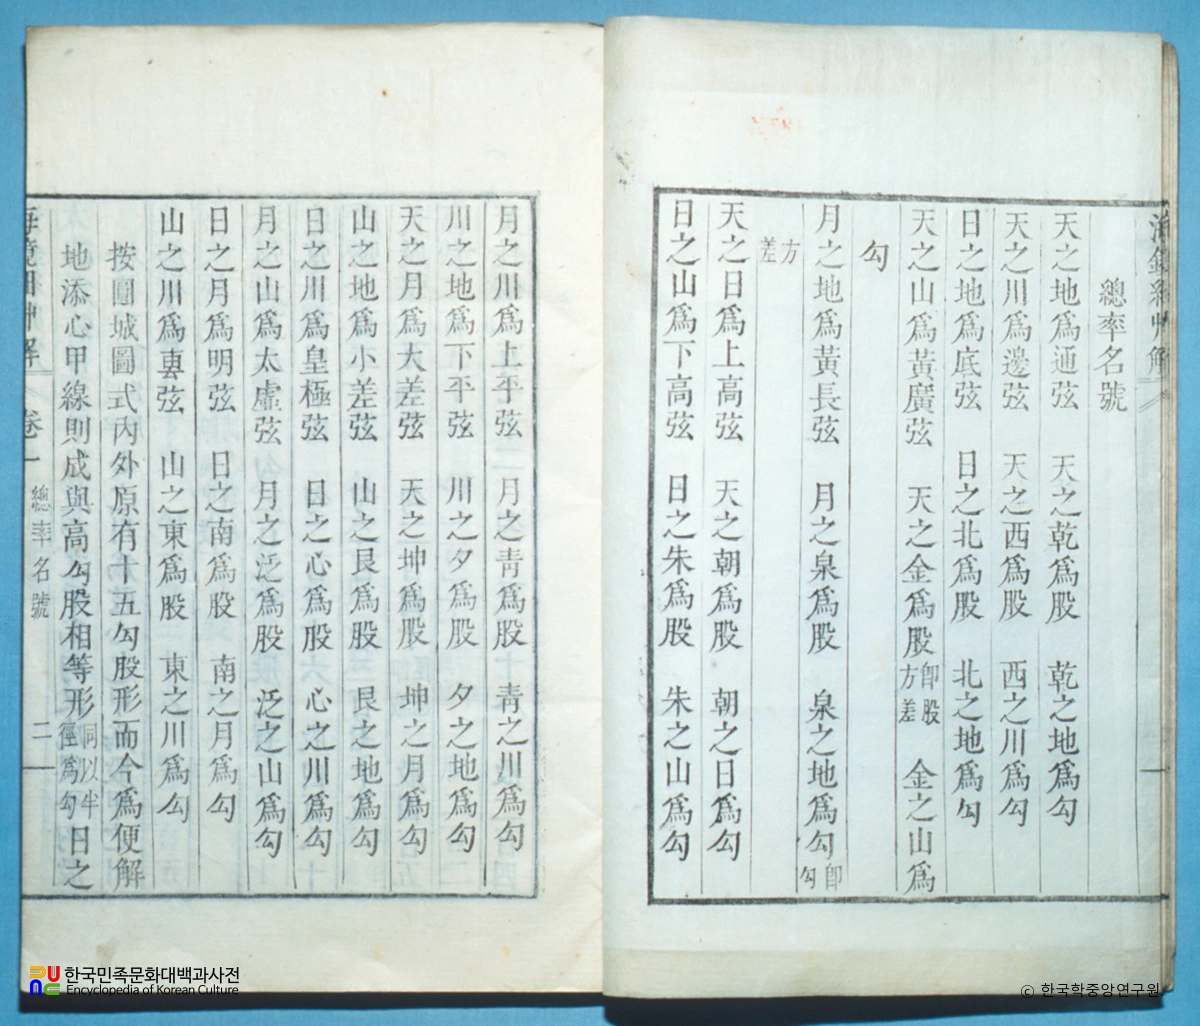 海鏡細艸解
總率名號
天之地爲通弦 天之乾爲股 乾之地爲勾
天之川爲邊弦 天之西爲股 西之川爲勾
日之地爲底弦 日之北爲股 北之地爲勾
天之山爲黃廣弦 天之金爲股卽股方差 金之山爲
勾
月之地爲黃長弦 月之泉爲股 泉之地爲勾卽勾
方差
天之日爲上高弦 天之朝爲股 朝之日爲勾
日之山爲下高弦 日之朱爲股 朱之山爲勾
一
月之川爲上平弦 月之靑爲股 靑之川爲勾
川之地爲下平弦 川之夕爲股 夕之地爲勾
天之月爲大差弦 天之坤爲股 坤之月爲勾
山之地爲小差弦 山之艮爲股 艮之地爲勾
日之川爲皇極弦 日之心爲股 心之川爲勾
月之山爲太虛弦 月之泛爲股 泛之山爲勾
日之月爲明弦 日之南爲股 南之月爲勾
山之川爲叀弦 山之東爲股 東之川爲勾
按圓城圖式內外原有十五勾股形而今爲便解
地添心甲線則成與高勾股相等形同以半徑爲勾日之
海鏡細艸解 卷一 總率名號 二
한국민족문화대백과사전
Encyclopedia of Korean Culture
© 한국학중앙연구원